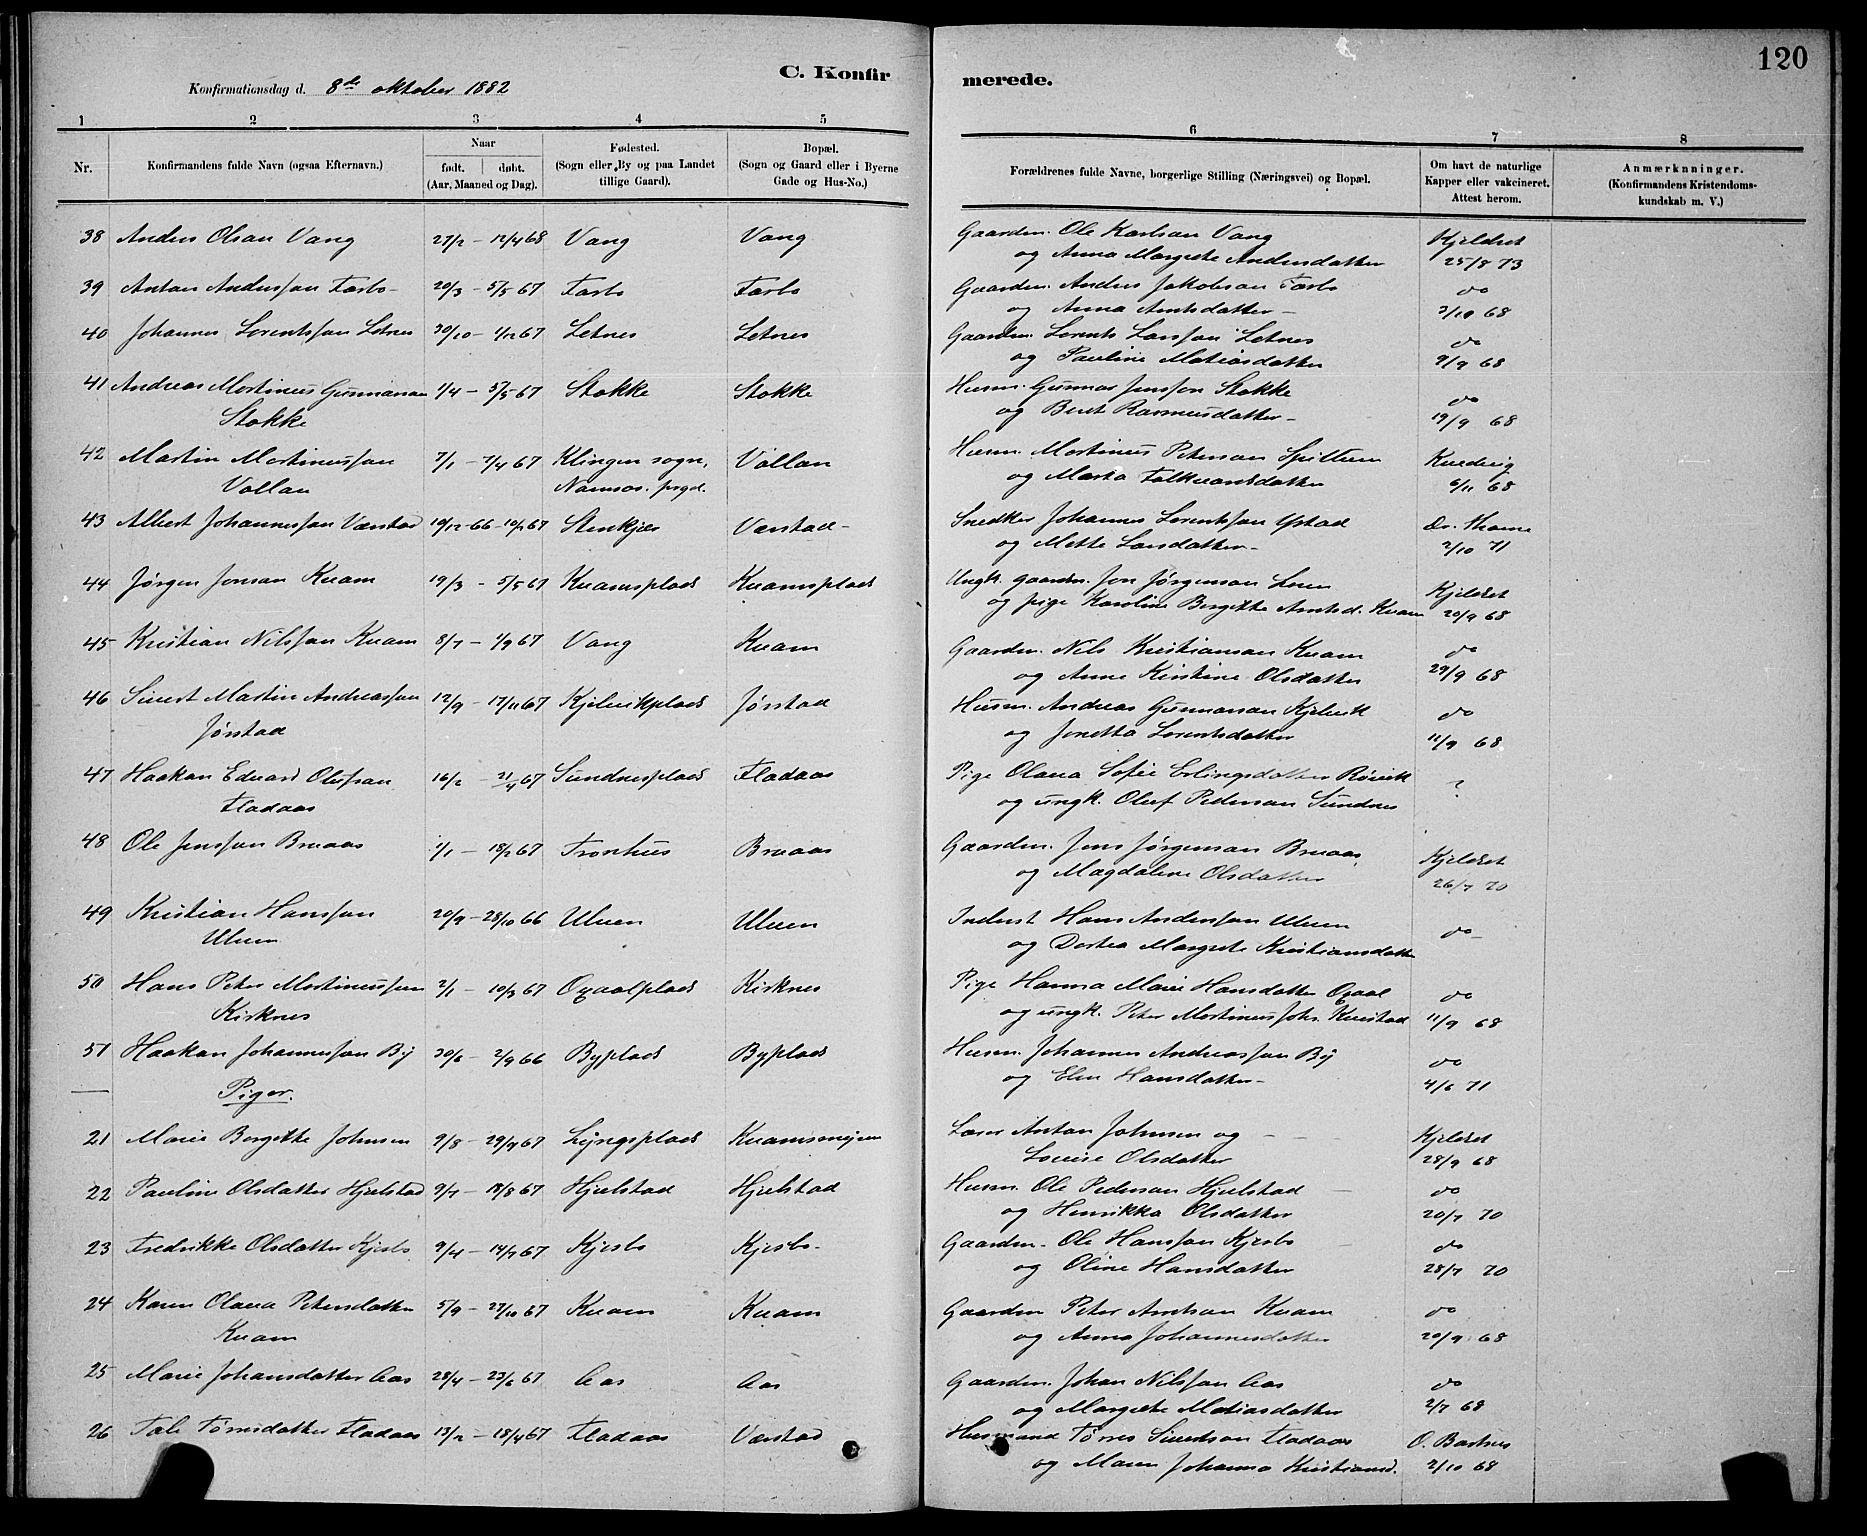 120
C. Konfirmerede.
Konfirmationsdag d. 8de oktober 1882
1 2 3 4 5 6 7 8
Nr. Konfirmandens fulde Navn (ogsaa Efternavn.) Naar født. døbt. (Aar, Maaned og Dag). Fødested. (Sogn eller By og paa Landet tillige Gaard). Bopæl. (Sogn og Gaard eller i Byerne Gade og Hus-No.) Forældrenes fulde Navne, borgerlige Stilling (Næringsvei) og Bopæl. Om havt de naturlige Kapper eller vakcineret. Attest herom. Anmærknninger. (Konfirmandens Kristendomskundskab m. V.)
38 Anders Olsen Vang 27/2 – 12/4 68 Vang Vang Gaardm. Ole Karlsen Vang Kjeldset
og Anna Margrete Andersdatter 25/8 73
39 Anton Anderssen Farbo 20/3 – 5/5 67 Farbo Farbo Gaardm. Anders Jakobsen Farbo do
og Anna Arntsdatter – 3/10 68
40 Johannes Lorentssen Letnes 30/10 – 1/12 67 Letnes Letnes Gaardm. Lorents Larssen Letnes do
og Pauline Matiasdatter 9/9 68
41 Andreas Mortinus Gunnarsen 1/4 – 5/5 67 Stokke Stokke Husm. Gunnar Jenssen Stokke do
Stokke og Beret Rasmusdatter – 19/9 68
42 Martin Mortinussen 7/1 – 7/4 67 Klingen sogn, Vollan Husm. Mortinus Petersen Spillum
Vollan Namsos prgd. og Marta Falkvardsdatter 6/11 68
43 Albert Johannessen Værstad 19/12 66 – 10/2 67 Stenkjær Værstad – Snedker Johannes Lorentssen Ystad
og Mette Larsdatter – 2/10 71
44 Jørgen Jonsen Kvam 19/3 – 5/5 67 Kvamsplads Kvamsplads Ungk. gaardm. Jon Jørgensen Kjeldset
og pige Karoline Bergitte Arntsd. Kvam 20/9 68
45 Kristian Nilssen Kvam 8/7 – 1/9 67 Vang Kvam Gaardm. Nils Kristiansen Kvam do
og Anne Kirstine Olsdatter 29/9 68
46 Sivert Martin Andreassen 12/9 – 17/11 67 Kjelvikplads Jørstad Husm. Andreas Gunnarsen Kjelvik do
Jørstad og Jonetta Lorentsdatter 11/9 68
47 Haakon Edvard Olufsen 16/2 – 21/4 67 Sundnesplads Fladaas Pige Olava Sofie Erlingsdatter Røvik ?
Fladaas og ungk. Oluf Pedersen Sundnes
48 Ole Jenssen Bruaas 1/1 – 18/2 67 Tronhus Bruaas Gaardm. Jens Jørgensen Bruaas Kjeldset
og Magdalena Olsdatter 26/7 70
49 Kristian Hanssen 20/9 – 28/10 66 Ulven Ulven Inderst Hans Anderssen Ulven do –
Ulven og Dortea Margrete Kristiansdatter
50 Hans Peter Mortinussen 2/1 – 10/3 67 Opaalplads Kirknes Pige Hanna Marie Hansdatter Opaal do
Kirknes og ungk. Peter Mortinus Johs. Kvistad 11/9 68
51 Haakon Johannessen By 30/6 – 2/9 66 Byplads Byplads Husm. Johannes Andreassen By do
og Elen Hansdatter – 4/6 71
Piger.
21 Marie Bergitte Johnsen 9/8 – 29/9 67 Lyngsplads Kvamsmyren Lærer Anton Johnsen og – Kjeldset
Lovise Olsdatter 28/9 68
22 Pauline Olsdatter Hjelstad 9/7 – 18/8 67 Hjelstad Hjelstad Husm. Ole Pedersen Hjelstad do
og Henrikka Olsdatter 20/7 70
23 Fredrikke Olsdatter Kjesbo 9/4 – 14/7 67 Kjesbo Kjesbo – Gaardm. Ole Hanssen Kjesbo do
og Oline Hansdatter 28/7 70
24 Karen Olava Petersdatter 5/9 – 27/10 67 Kvam Kvam Gaardm Peter Arntsen Kvam do
Kvam og Anna Johannesdatter 20/9 68
25 Marie Johansdatter Aas 28/4 – 23/6 67 Aas Aas Gaardm. Johan Nilssen Aas do
og Margrete Matiasdatter 2/7 68
26 Tale Tørresdatter Fladaas 13/2 – 18/4 67 Fladaas Værstad Husmand Tørres Sivertsen Fladaas O. Bartnes
og Maren Johanna Kristiansd. 2/10 68